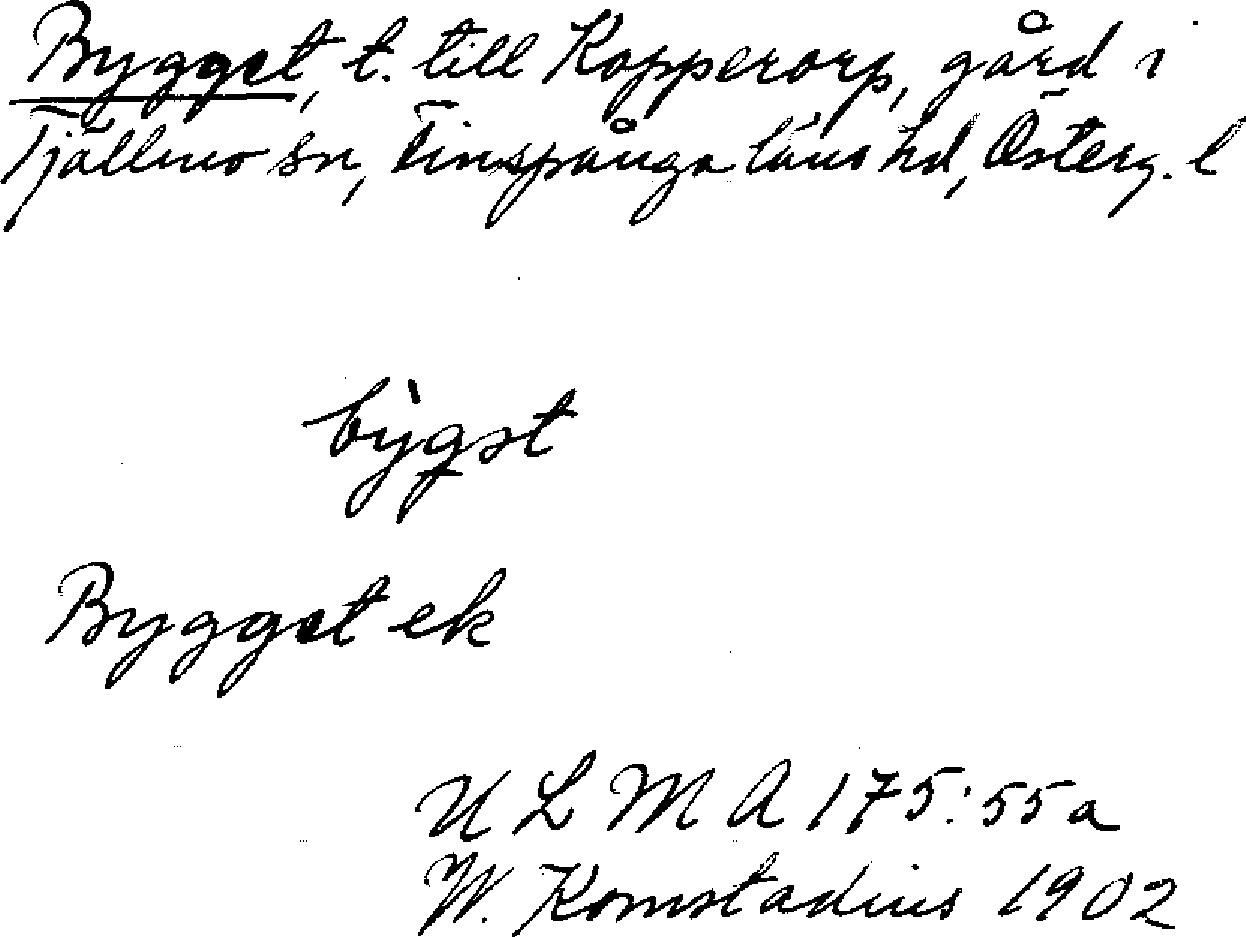 Byggst, t. till Kopperorp, gård i
Tjällmo sn, Finspånga läns hd, Österg. l
bỳgst
Byggst ek
U L M A 175:55a
W. Komstadius 1902